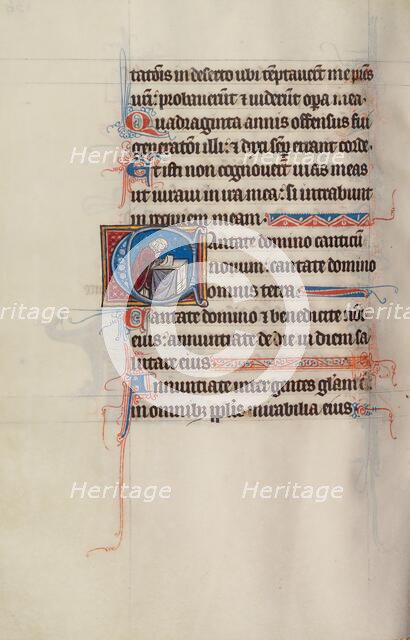 tatois in deserto ubi teptauert me pres
uri: probauerunt & uiderunt opa mea.
Quadraginta annis offensus fui
generatoni illi: & dixi semp errant corde.
Et isti non cognouert uias meas
ut iuraui in ira mea: si intrabunt
in requiem meam.
Cantate domino canticu
nouum: cantate domino
omnis terra.
Cantate domino & benedicite noi
eius: annuntiate de die in diem sa
lutare eius
Annuntiate inter gentes gliam ei
in omnibz pplis mirabilia eius
Heritage
Heritage
Heritage
Heritage
Heritage
Heritage
Heritage